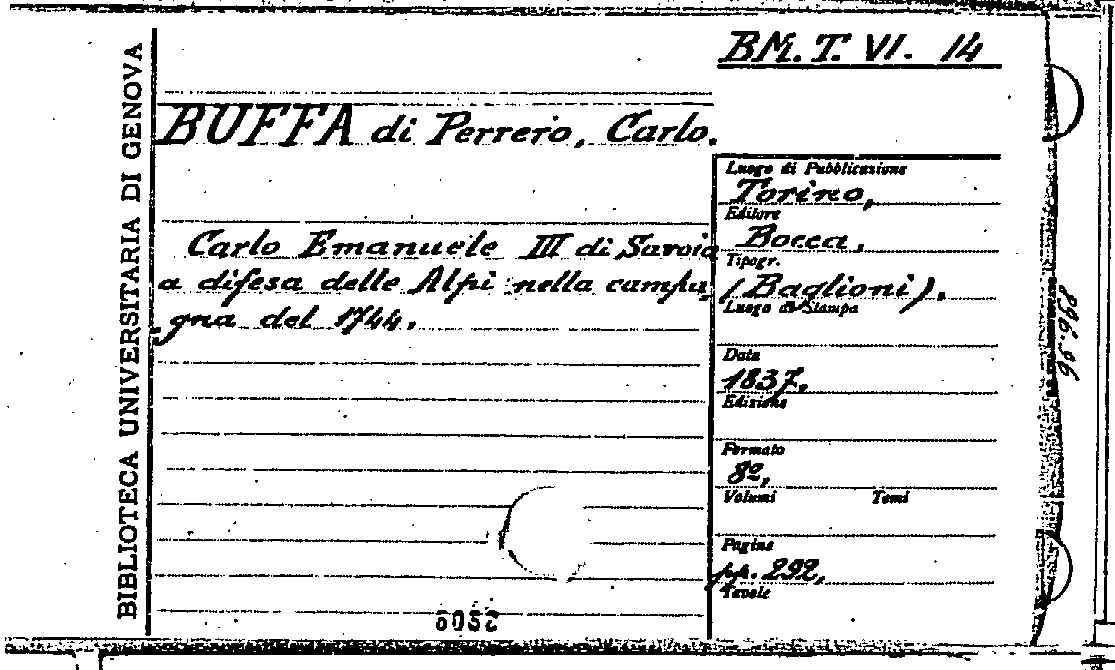 BIBLIOTECA UNIVERSITARIA DI GENOVA
BM. T. VI. 14
BUFFA di Perrero, Carlo.
Carlo Emanuele III di Savoia
a difesa delle Alpi nella campa-
gna del 1744.
Luogo di Pubblicazione
Torino,
Editore
Bocca,
Tipogr.
(Baglioni).
Luogo di Stampa
Data
1837,
Edizione
Formato
8º,
Volumi Tomi
Pagine
pp. 292,
Tavole